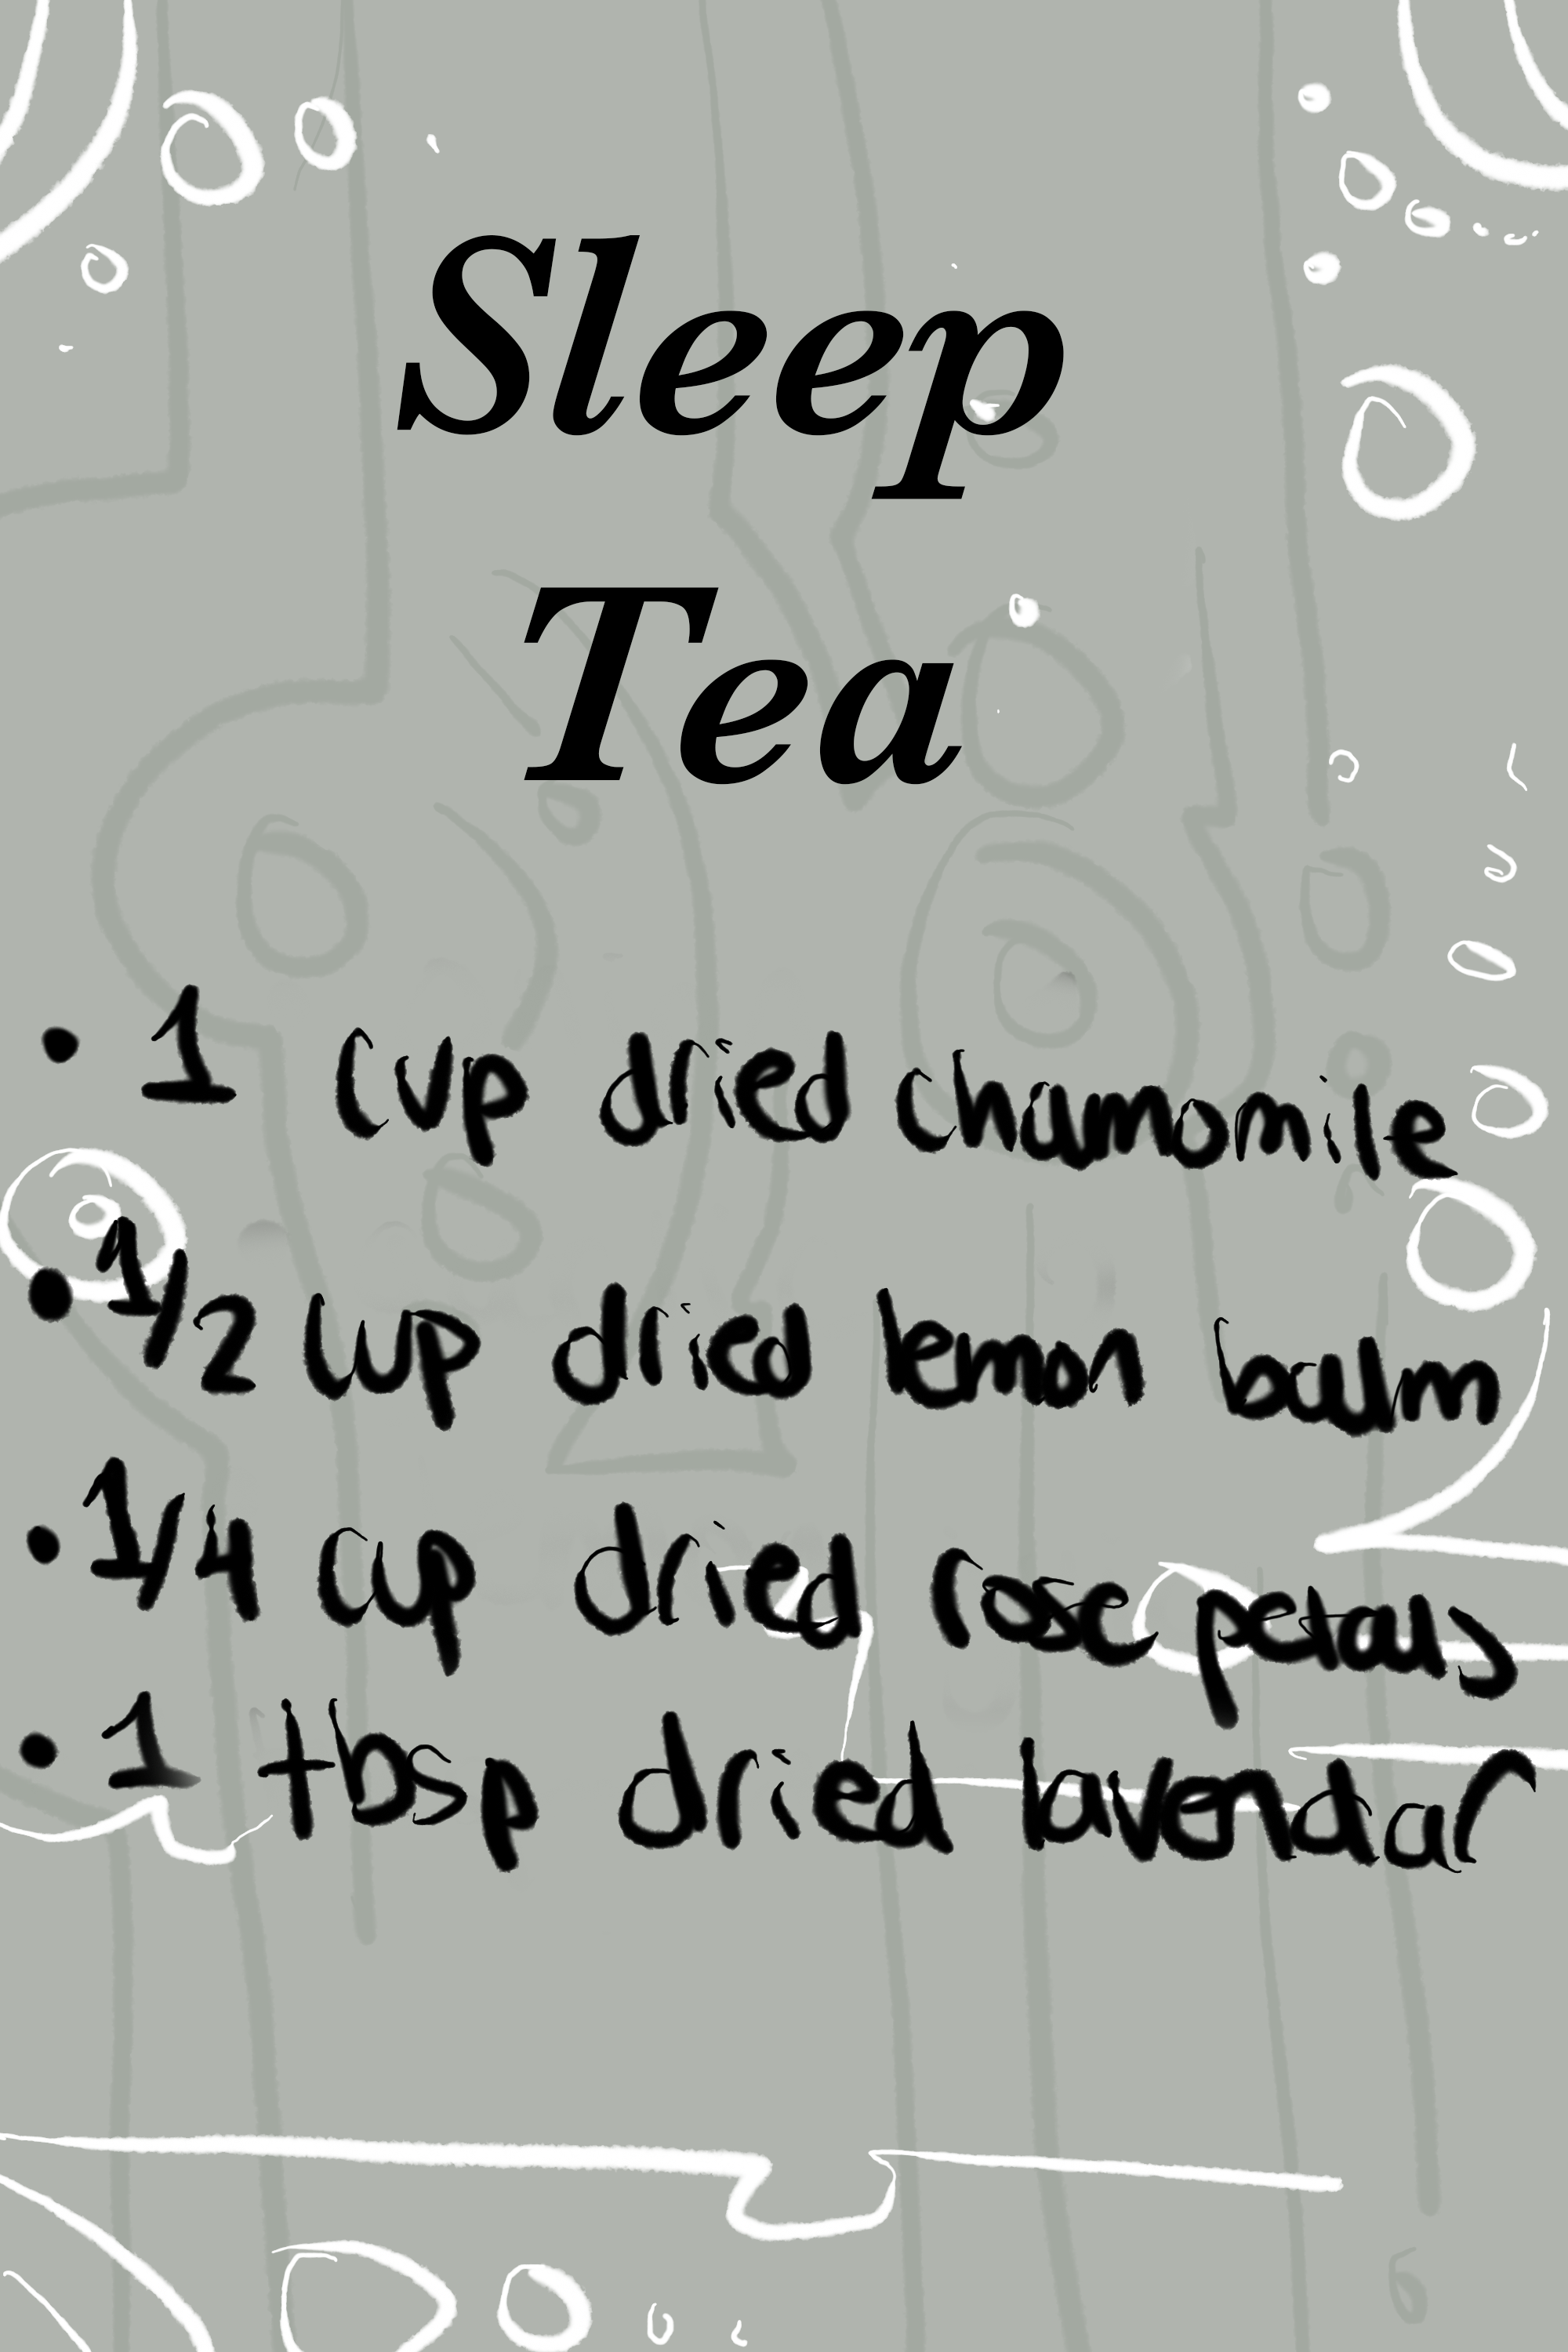 Sleep
Tea
• 1 cup dried chamomile
• 1/2 cup dried lemon balm
• 1/4 cup dried rose petals
• 1 tbsp dried lavendar